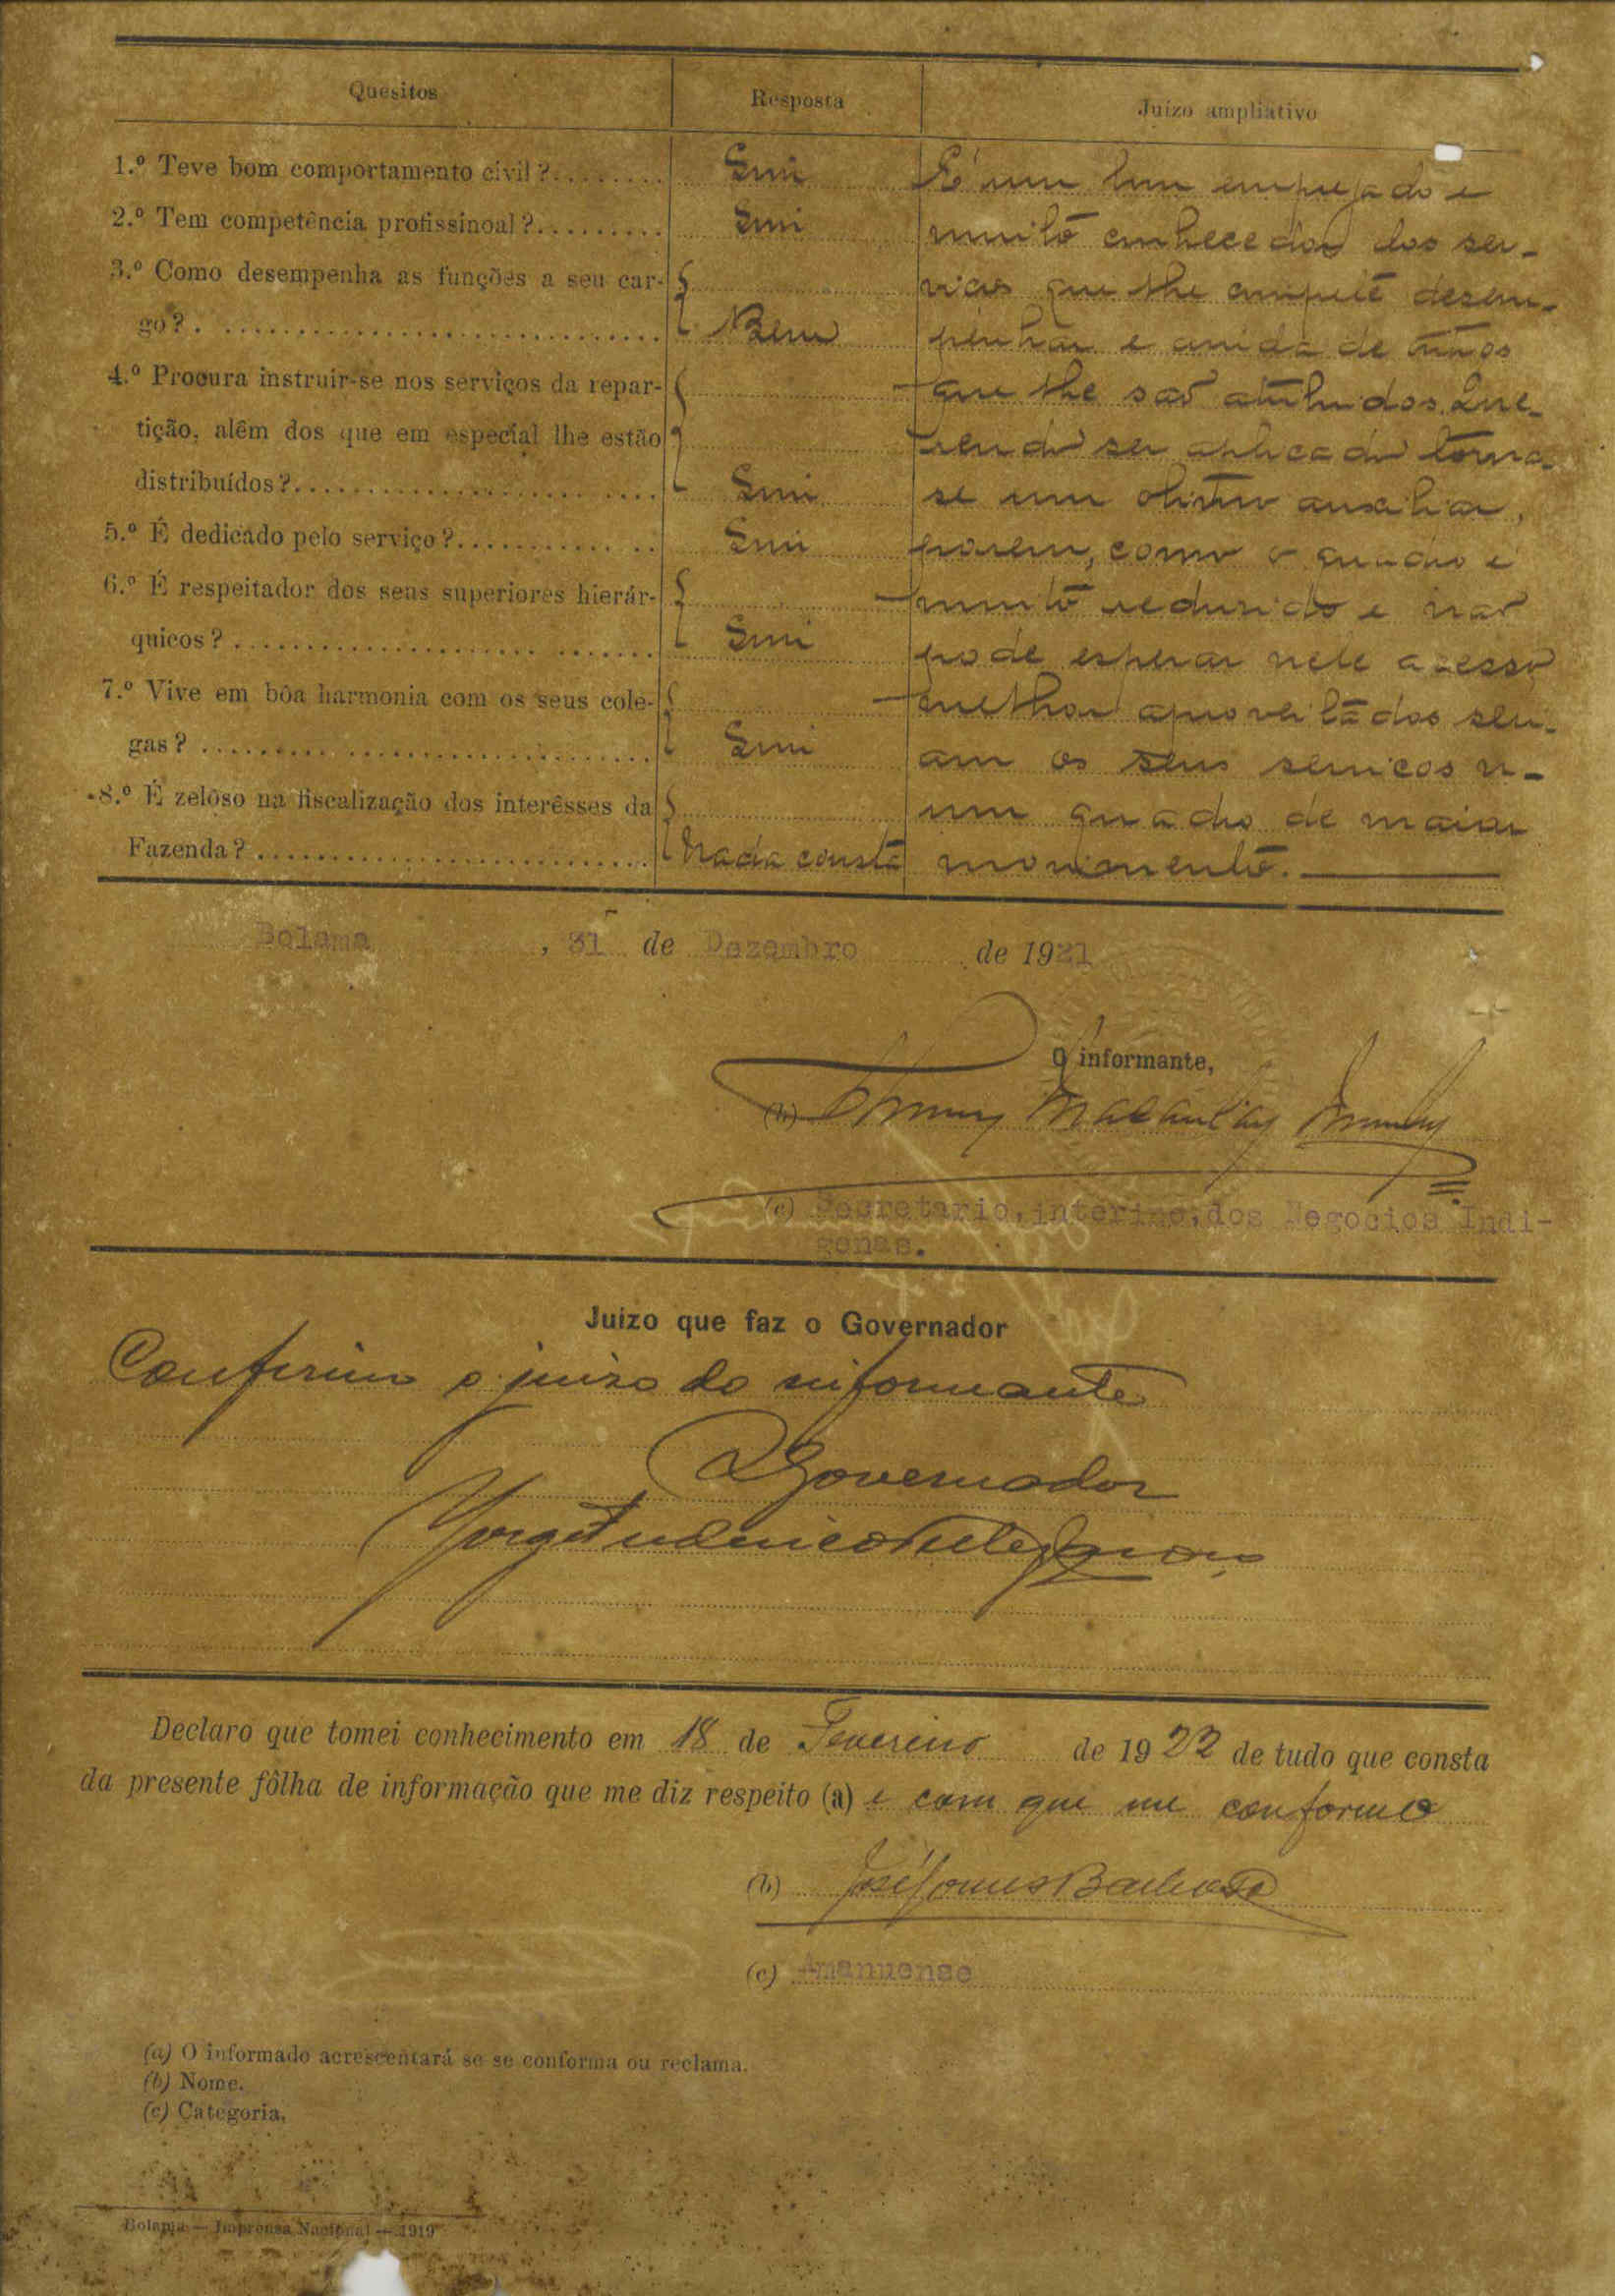 Quesitos Resposta Juízo ampliativo
1.º Teve bom comportamento civil?........ Sim É um bom empregado e
2.º Tem competência profissinoal?......... Sim muito conhecedor dos ser-
3.º Como desempenha as funções a seu car- viços que lhe compete desem-
go?. .............................. Bem penhar e ainda de
4.º Procura instruir-se nos serviços da repar- que lhe são atribuidos. Que-
tição, alêm dos que em especial lhe estão rendo ser aplicado torna
distribuídos?......................... Sim se um optimo auxiliar,
5.º É dedicado pelo serviço?............. Sim porem, como o quadro é
6.º É respeitador dos seus superiores hierár- muito reduzido e não
quicos?............................ Sim pode esperar nele acesso
7.º Vive em bôa harmonia com os seus cole- melhor aproveitados seri-
gas?.............................. Sim am os seus serviços n-
8.º É zelôso na fiscalização dos interêsses da um quadro de maior
Fazenda?........................... Nada consta movimento.
Bolama, 31 de Dezembro de 1921
O informante,
(b) Macaulay
(c) Secretario, interino, dos Negocios Indi-
genas.
Juizo que faz o Governador
Confirmo o juizo do informante
O Governador
Jorge Frederico Velez Caroço
Declaro que tomei conhecimento em 18 de Fevereiro de 1922 de tudo que consta
da presente fôlha de informação que me diz respeito (a) e com que me conformo
(b) José Gomes Barbosa
(c) Amanuense
(a) O informado acrescentará se se conforma ou reclama.
(b) Nome.
(c) Categoria.
Bolama — Imprensa Nacional — 1919